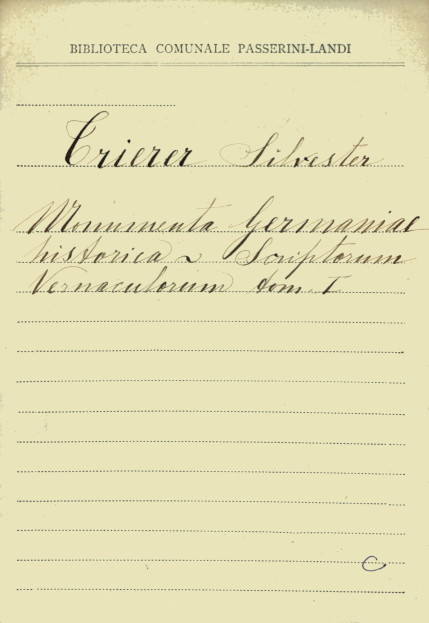 BIBLIOTECA COMUNALE PASSERINI-LANDI
Trierer Silvester
Monumenta Germaniae
historica ~ Scriptorum
Vernaculorum tom. I
C